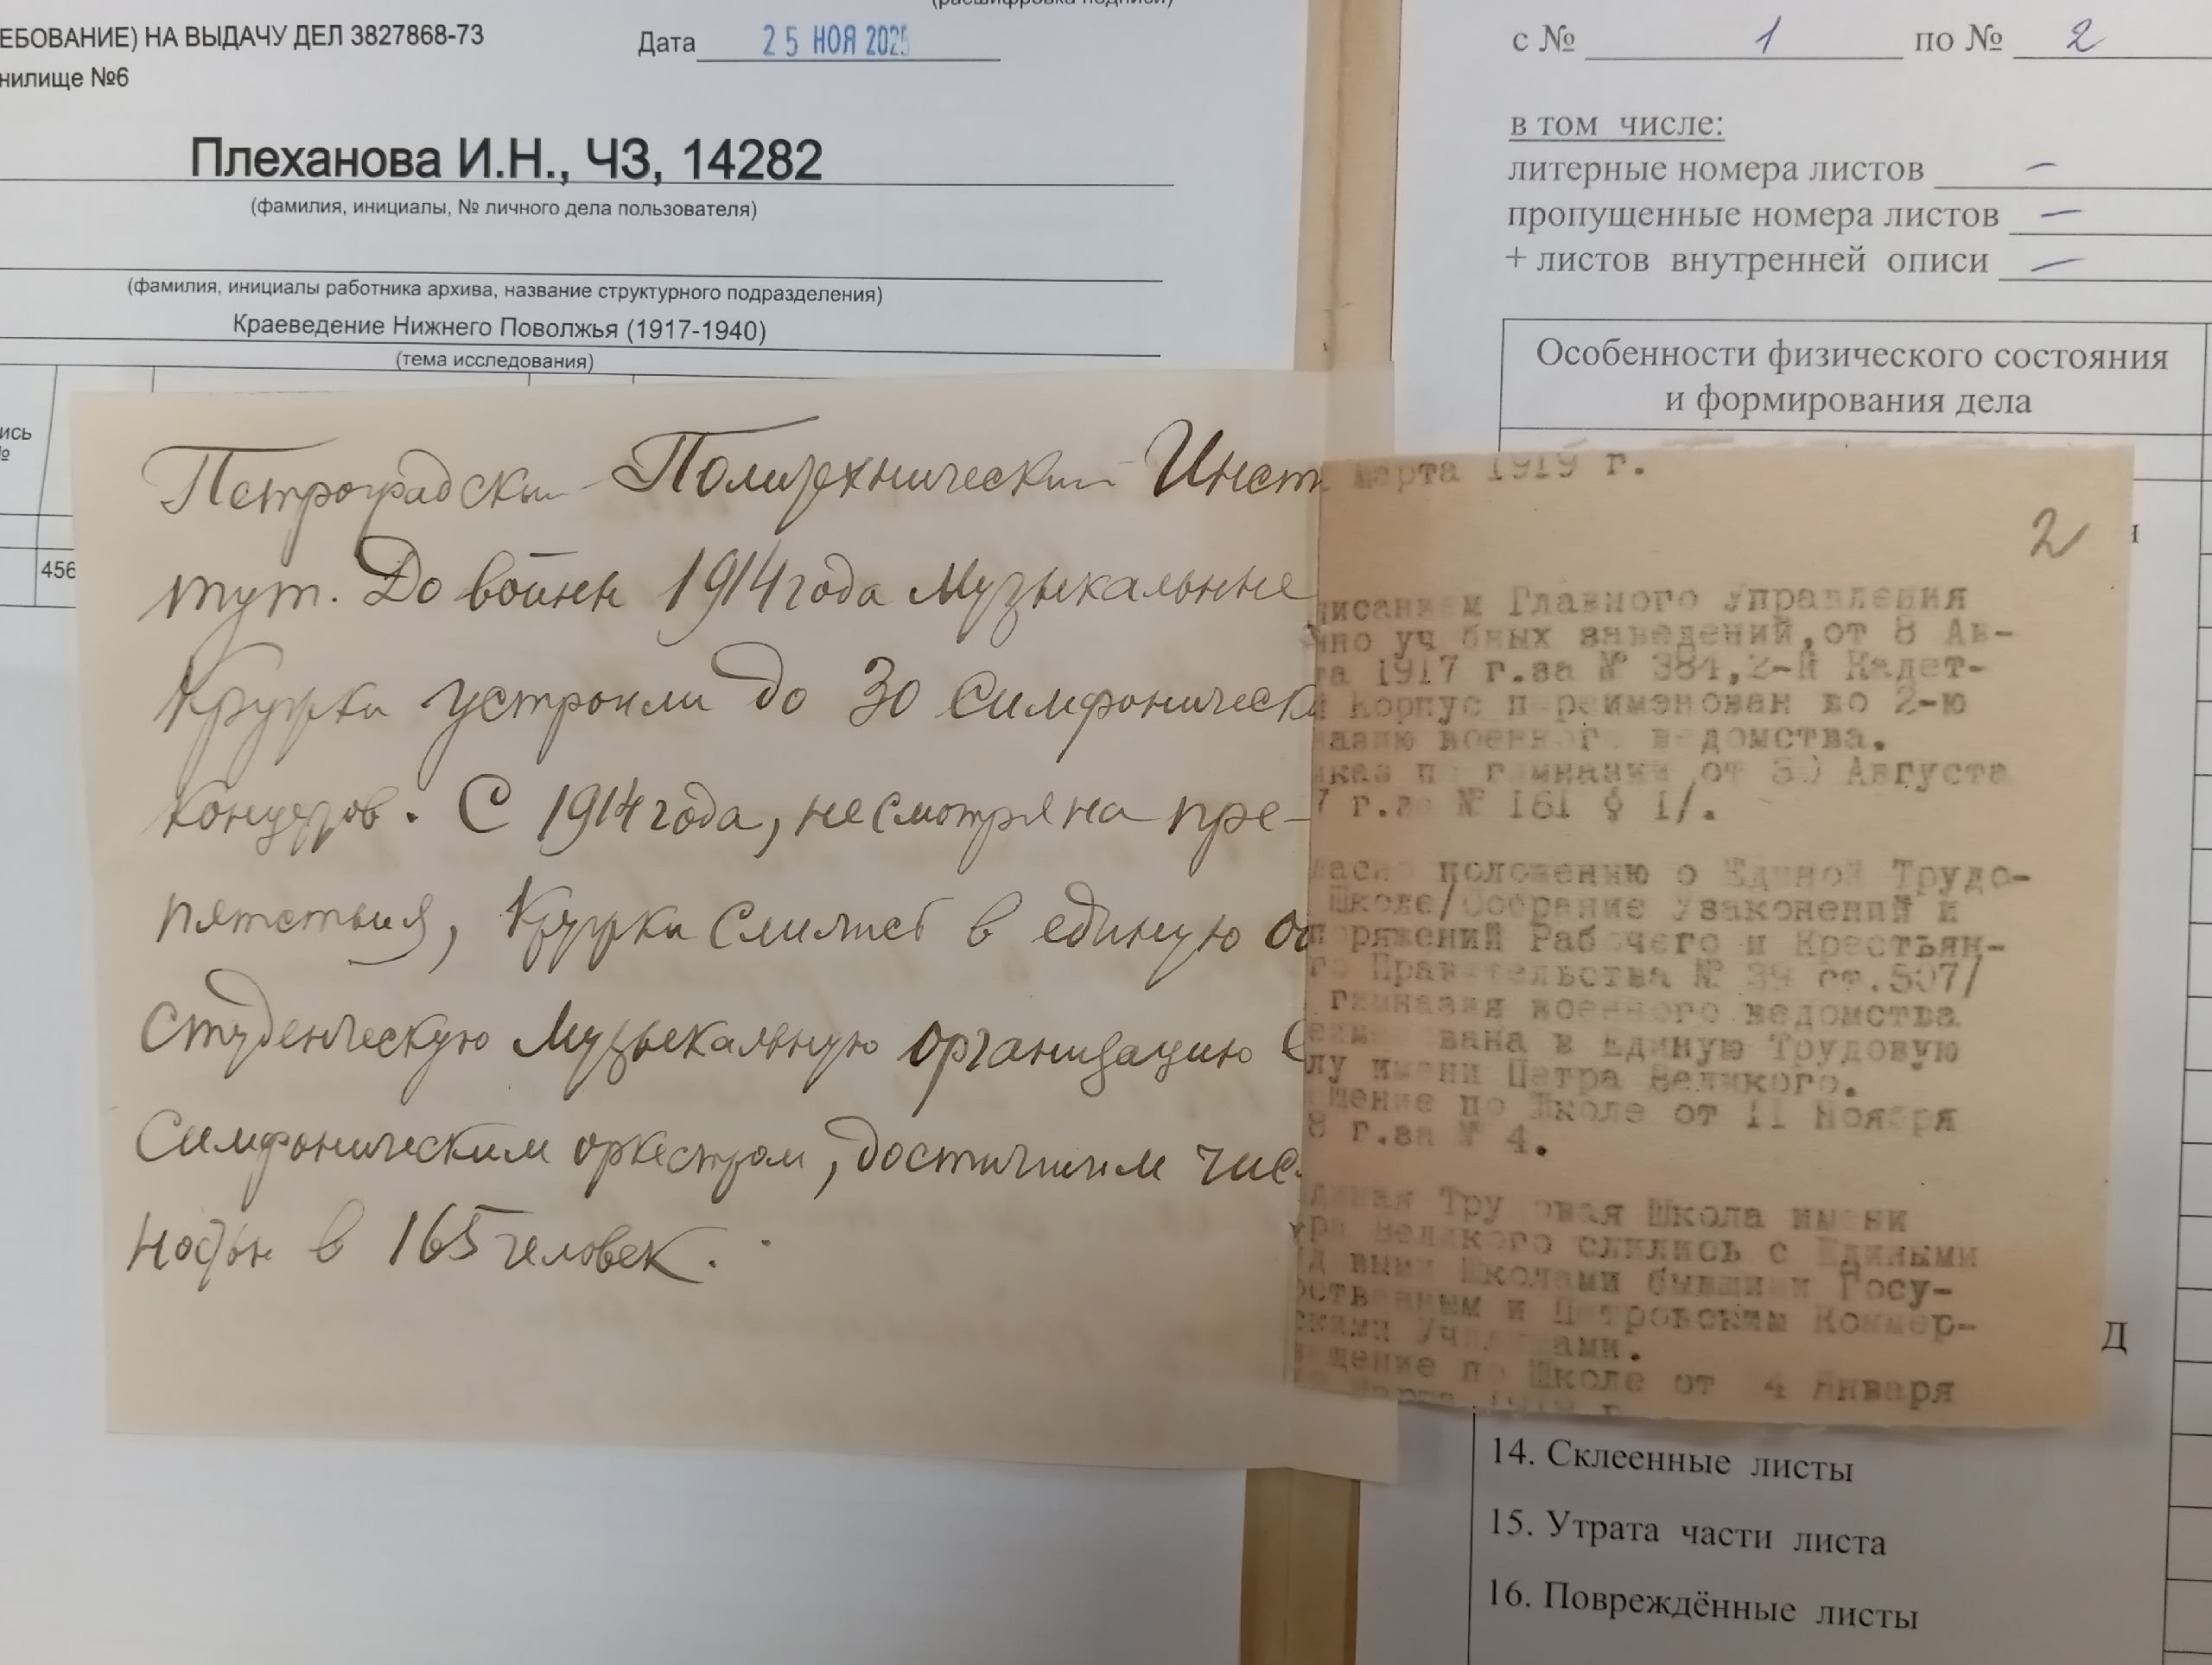 (расшифровка подписи)
ЕБОВАНИЕ) НА ВЫДАЧУ ДЕЛ 3827868-73
Дата 25 НОЯ 2025
нилище №6
Плеханова И.Н., ЧЗ, 14282
(фамилия, инициалы, № личного дела пользователя)
(фамилия, инициалы работника архива, название структурного подразделения)
Краеведение Нижнего Поволжья (1917-1940)
(тема исследования)
ись
№
456
с № 1 по № 2
в том числе:
литерные номера листов —
пропущенные номера листов —
+ листов внутренней описи —
Особенности физического состояния
и формирования дела
Петроградский Политехнический Инст
тут. До войны 1914 года Музыкальные
Кружки устроили до 30 симфоническ
концертов. С 1914 года, несмотря на пре-
пятствия, Кружки слились в единую о
студенческую Музыкальную организацию с
симфоническим оркестром, достигшим чис
ности в 165 человек.
марта 1919 г.
2
писанием Главного Управления
но учебных заведений, от 8 Ав-
та 1917 г.за № 384, 2-й Кадет-
Корпус переименован во 2-ю
назию военного ведомства.
иказ по гимназии от 30 Августа
7 г.за № 161 § 1/.
ласно положению о Единой Трудо-
Школе/Собрание Узаконений и
поряжений Рабочего и Крестьян-
го Правительства № 39 ст.507/
гимназия военного ведомства
еименована в Единую Трудовую
лу имени Петра Великого.
щение по Школе от 11 Ноября
8 г.за № 4.
диная Трудовая Школа имени
тра Великого слились с Едиными
уд выми Школами бывшими Госу-
рственным и Петровским Коммер-
скими Училищами.
ещение по Школе от 4 Января
марта 1919 г.
Д
14. Склеенные листы
15. Утрата части листа
16. Повреждённые листы